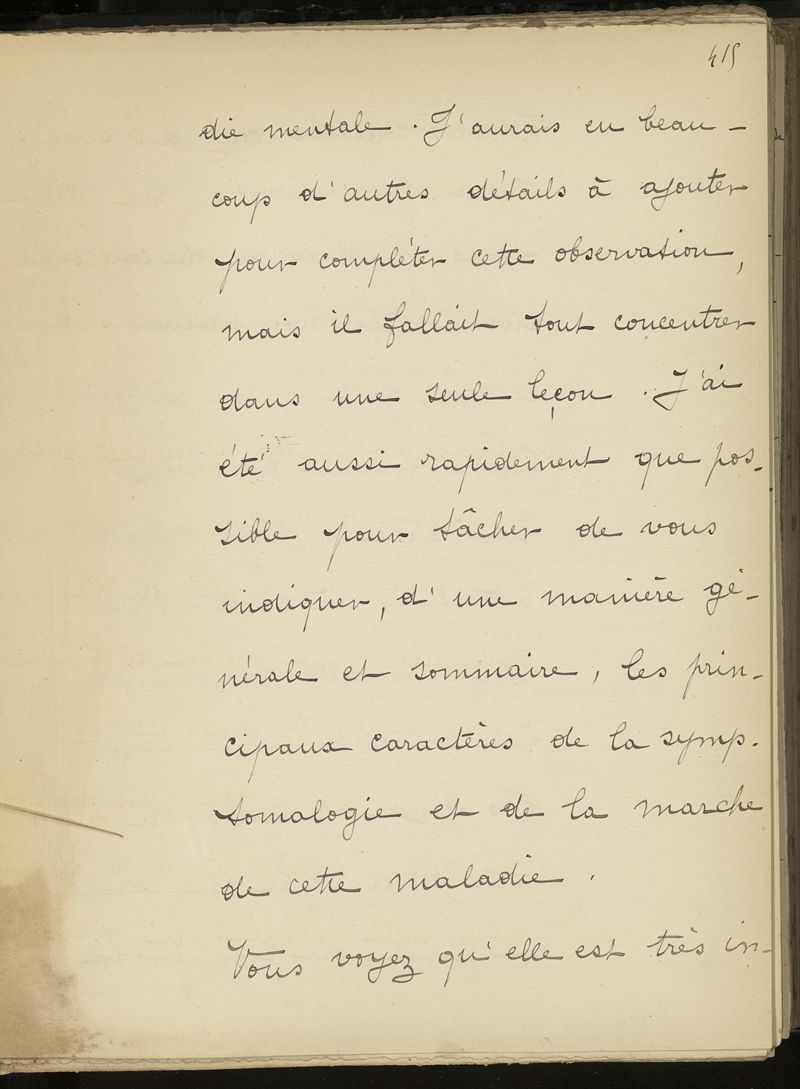 415
die mentale. J'aurais eu beau-
coup d'autres détails à ajouter
pour compléter cette observation,
mais il fallait tout concentrer
dans une seule leçon. J'ai
été aussi rapidement que pos-
sible pour tâcher de vous
indiquer, d'une manière gé-
nérale et sommaire, les prin-
cipaux caractères de la symp-
tomalogie et de la marche
de cette maladie.
Vous voyez qu'elle est très in-